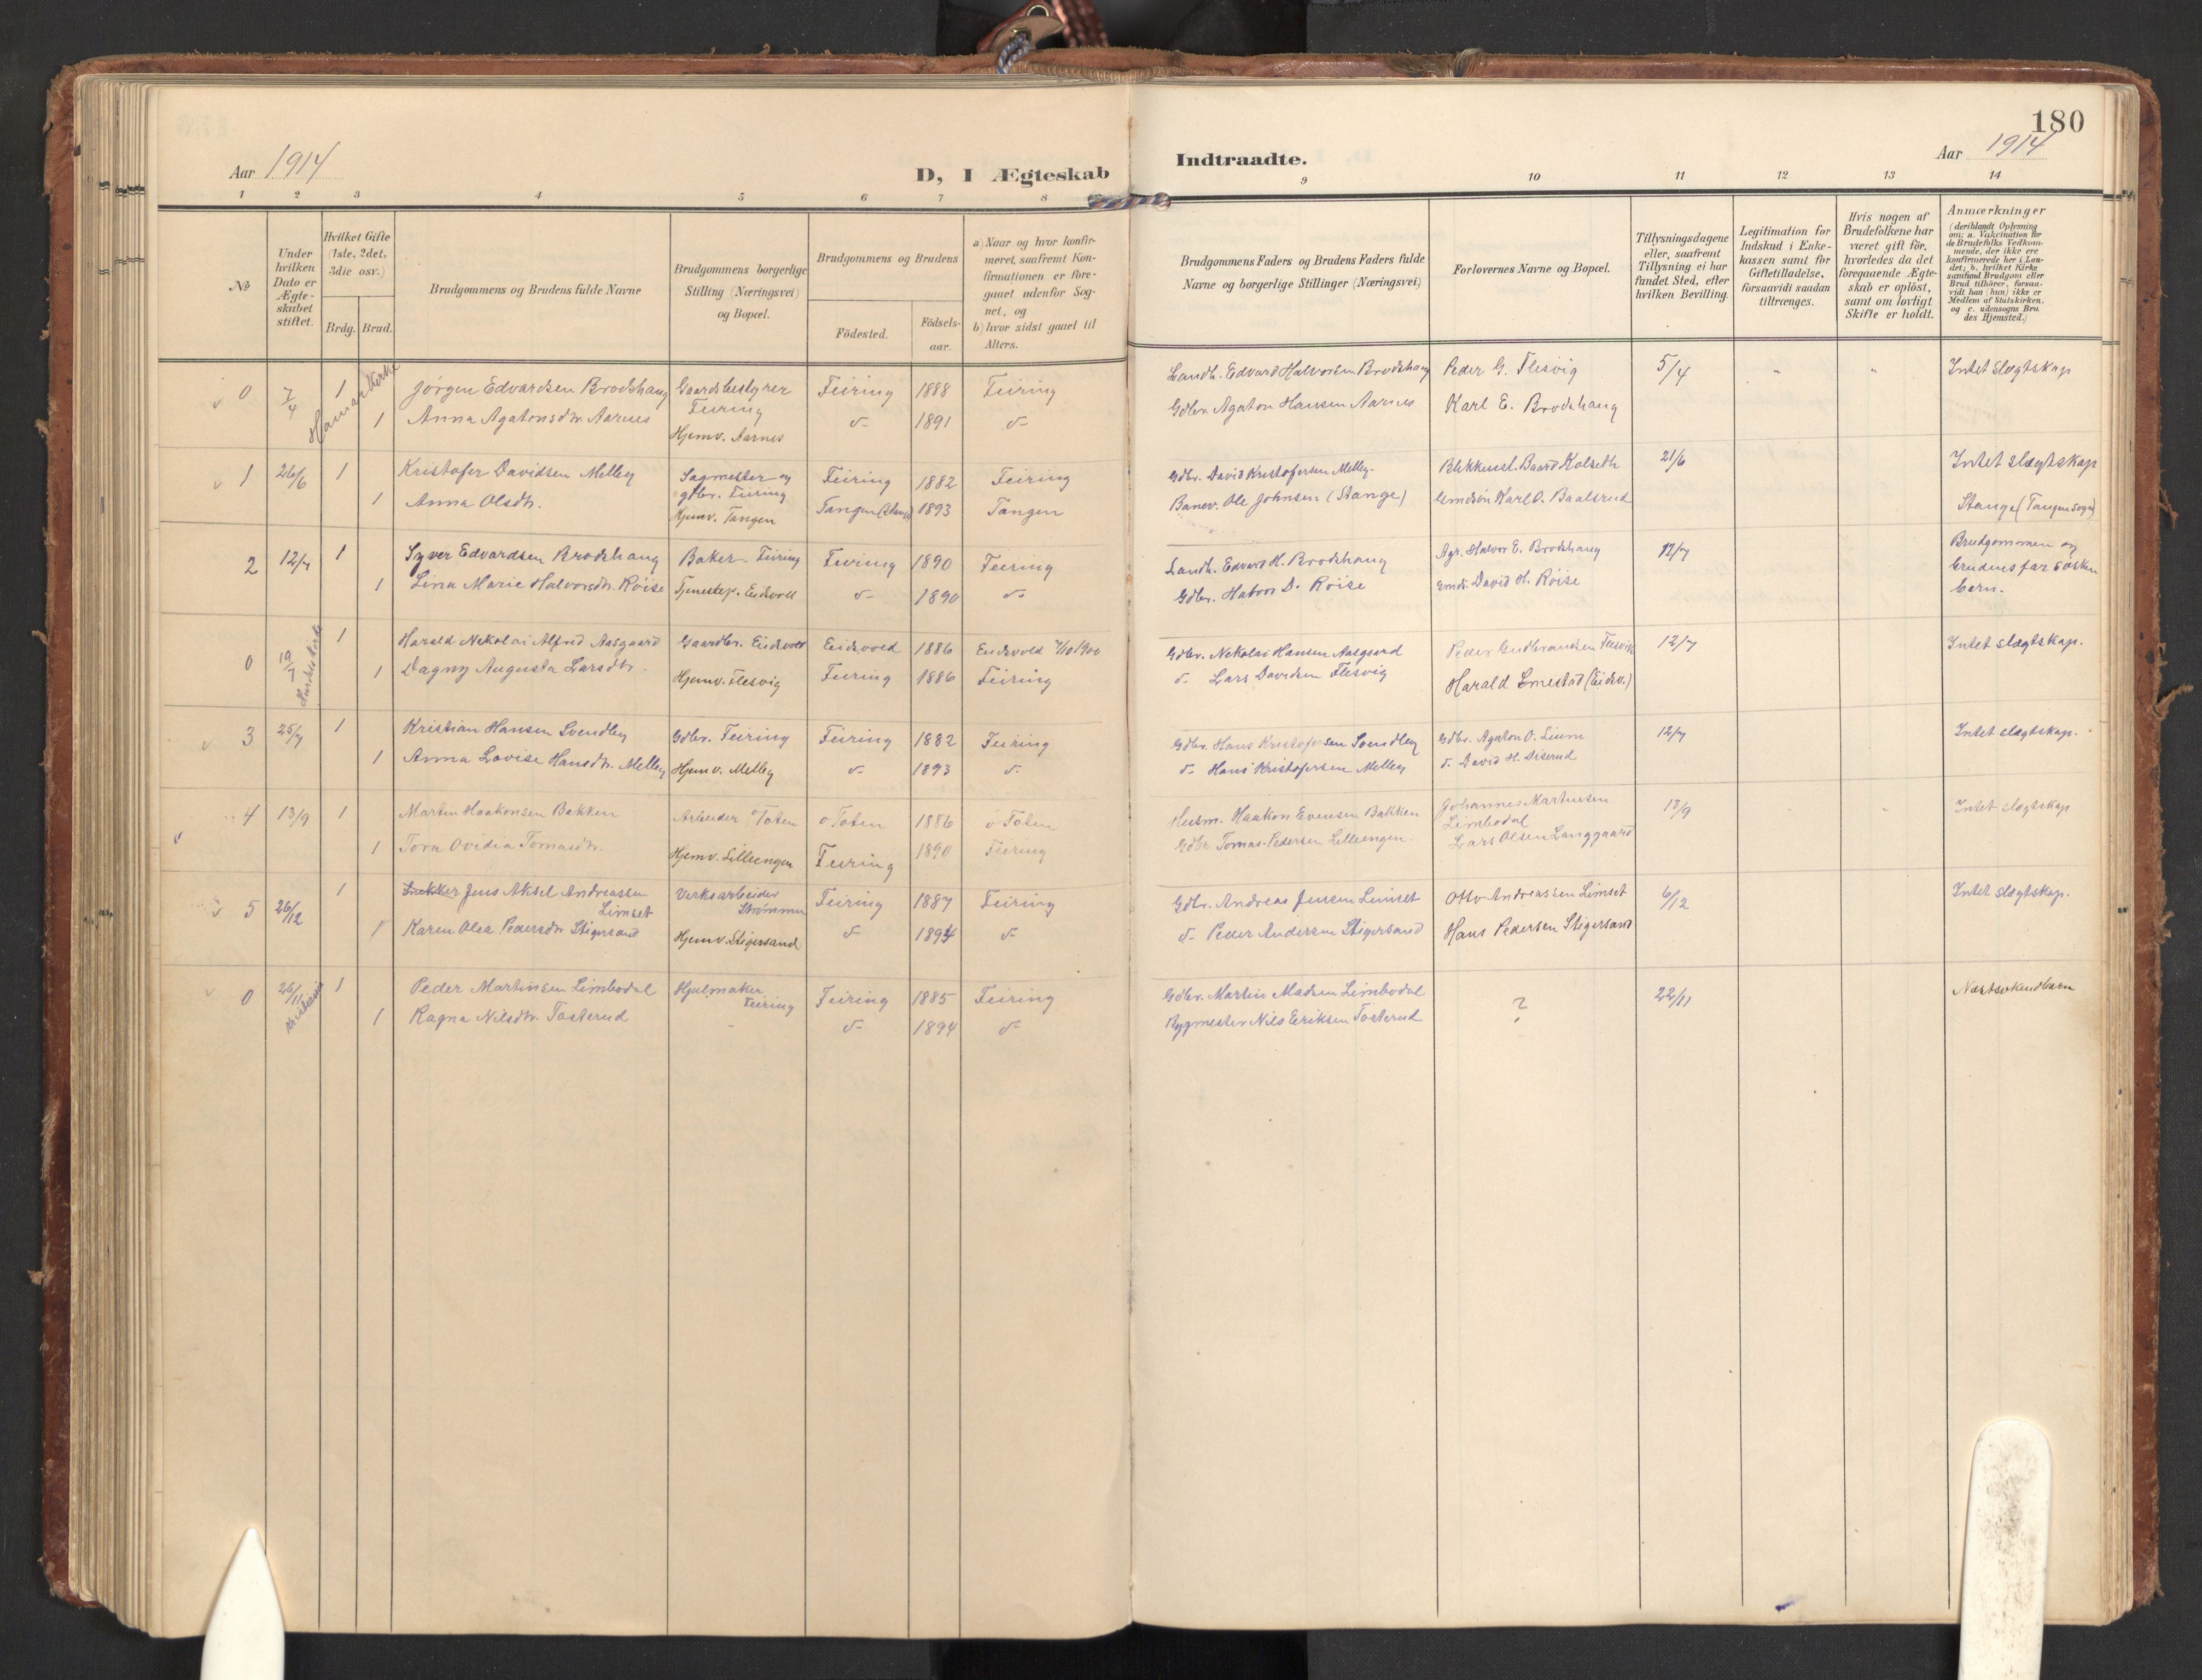 180
Aar 1914
D, I Ægteskab
Indtraadte.
Aar 1914
1 2 3 4 5 6 7 8
9 10 11 12 13 14
№
Under
hvilken
Dato er
Ægte-
skabet
stiftet.
Hvilket Gifte
(1ste, 2det,
3die osv.)
Brdg. Brud.
Brudgommens og Brudens fulde Navne
Brudgommens borgerlige
Stilling (Næringsvei)
og Bopæl.
Brudgommens og Brudens
Födested.
Födsels-
aar.
a) Naar og hvor konfir-
meret, saafremt Kon-
firmationen er fore-
gaaet udenfor Sog-
net, og
b) hvor sidst gaaet til
Alters.
Brudgommens Faders og Brudens Faders fulde
Navne og borgerlige Stillinger (Næringsvei)
Forlovernes Navne og Bopæl.
Tillysningsdagene
eller, saafremt
Tillysning ei har
fundet Sted, efter
hvilken Bevilling.
Legitimation for
Indskud i Enke-
kassen samt for
Giftetilladelse,
forsaavidt saadan
tiltrænges.
Hvis nogen af
Brudefolkene har
været gift för,
hvorledes da det
foregaaende Ægte-
skab er oplöst,
samt om lovligt
Skifte er holdt.
Anmærkninger
(deriblandt Oplysning
om: a. Vakcination for
de Brudefolks Vedkom-
mende, der ikke ere
konfirmerede her i Lan-
det; b. hvilket Kirke
samfund Brudgom eller
Brud tilhörer, forsaa-
vidt han (hun) ikke er
Medlem af Statskirken,
og c. udensogns Bru
des Hjemsted.)
0 7/4 Hamar Kirke 1 Jørgen Edvardsen Brodshaug Gaardsbestyrer Feiring 1888 Feiring
Feiring
1 Anna Agatonsdtr. Aarnes Hjemv. Aarnes d- 1891 d-
Landh. Edvard Halvorsen Brodshaug Peder G. Flesvig 5/4 " " Intet slægtskap
Gdbr. Agaton Hansen Aarnes Karl E. Brodshaug
1 26/6 1 Kristofer Davidsen Melby Sagmester og Feiring 1882 Feiring
gdbr. Feiring
1 Anna Olsdtr. Hjemv. Tangen Tangen (Stange) 1893 Tangen
Gdbr. David Kristofersen Melby Baard Kolseth 21/6 Intet slægtskap
Banev. Ole Johnsen (Stange) Karl O. Baalsrud Stange (Tangen sogn)
2 12/7 1 Syver Edvardsen Brodshaug Baker - Feiring Feiring 1890 Feiring
1 Lina Marie Halvorsdtr. Røise Tjenestep. Eidsvoll d- 1890 d-
Landh. Edvard H. Brodshaug Agr. Halvor E. Brodshaug 12/7 Brudgommen og
Gdbr. Halvor D. Røise Gmds. David H. Røise brudens far søsken
barn.
0 19/7 Hurdals kirke 1 Harald Nikolai Alfred Aasgaard Gaardbr. Eidsvold Eidsvold 1886 Eidsvold 7/10 1900
1 Dagny Augusta Larsdtr. Hjemv. Flesvig Feiring 1886 Feiring
Gdbr. Nikolai Hansen Aasgaard Peder Gudbrandsen Flesvik 12/7 Intet slægtskap.
d- Lars Davidsen Flesvig Harald (Eidsv.)
3 25/7 1 Kristian Hansen Svendby Gdbr. Feiring Feiring 1882 Feiring
1 Anna Lovise Hansdtr. Melby Hjemv. Melby d- 1893 d-
Gdbr. Hans Kristofersen Svendby Gdbr. Agaton O. 12/7 Intet slægtskap.
d- Hans Kristofersen Melby d- David H. Diserud
4 13/9 1 Martin Haakonsen Bakken Arbeider Ø Toten Ø Toten 1886 Ø Toten
1 Tora Ovidia Tomasdtr. Hjemv. Lilleengen Feiring 1890 Feiring
Husm. Haakon Evensen Bakken Johannes Martinsen 13/9 " " Intet slægtskap
Limbodal
Gdbr. Tomas Pedersen Lilleengen. Lars Olsen Langgaard
5 26/12 1 Jens Aksel Andreassen Verksarbeider Feiring 1887 Feiring
Limset Strømmen
1 Karen Olea Pedersdtr. Stigersand Hjemv. Stigersand d- 1894 d-
Gdbr. Andreas Jensen Limset Otto Andreassen Limset 6/12 Intet slægtskap.
d- Peder Andersen Stigersand Hans Pedersen Stigersand
0 26/11 Kristiania 1 Peder Martinsen Limbodal Hjulmaker Feiring 1885 Feiring
Feiring
1 Ragna Nilsdtr. Tosterud - d- 1894 d-
Gdbr. Martin Madsen Limbodal ? 22/11 Næstsøskendbarn
Bygmester Nils Eriksen Tosterud